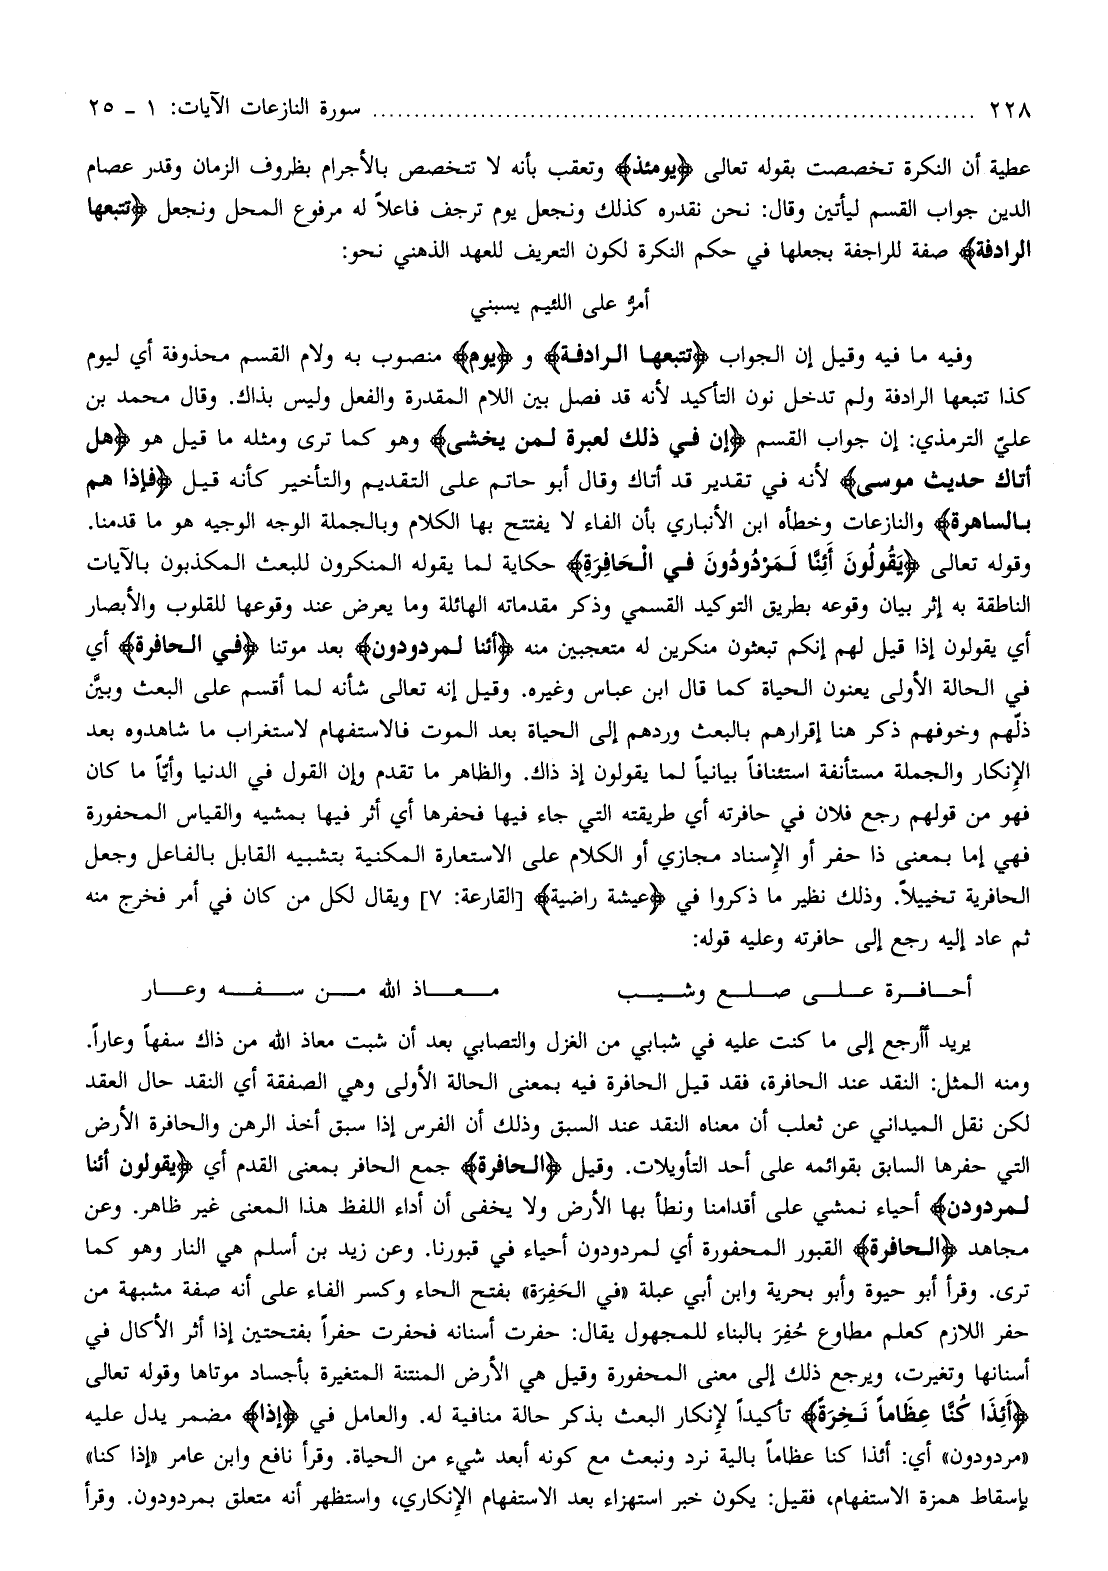 ٢٢٨ ........................................................................ سورة النازعات الآيات: ١ - ٢٥
عطية أن النكرة تخصصت بقوله تعالى ﴿يومئذ﴾ وتعقب بأنه لا تتخصص بالأجرام بظروف الزمان وقدر عصام
الدين جواب القسم ليأتين وقال: نحن نقدره كذلك ونجعل يوم ترجف فاعلاً له مرفوع المحل ونجعل ﴿تتبعها
الرادفة﴾ صفة للراجفة بجعلها في حكم النكرة لكون التعريف للعهد الذهني نحو:
أمرُّ على اللئيم يسبني
وفيه ما فيه وقيل إن الجواب ﴿تتبعها الرادفة﴾ و ﴿يوم﴾ منصوب به ولام القسم محذوفة أي ليوم
كذا تتبعها الرادفة ولم تدخل نون التأكيد لأنه قد فصل بين اللام المقدرة والفعل وليس بذاك. وقال محمد بن
عليّ الترمذي: إن جواب القسم ﴿إن في ذلك لعبرة لمن يخشى﴾ وهو كما ترى ومثله ما قيل هو ﴿هل
أتاك حديث موسى﴾ لأنه في تقدير قد أتاك وقال أبو حاتم على التقديم والتأخير كأنه قيل ﴿فإذا هم
بالساهرة﴾ والنازعات وخطأه ابن الأنباري بأن الفاء لا يفتتح بها الكلام وبالجملة الوجه الوجيه هو ما قدمنا.
وقوله تعالى ﴿يَقُولُونَ أَئِنَّا لَمَرْدُودُونَ في الْحَافِرَةِ﴾ حكاية لما يقوله المنكرون للبعث المكذبون بالآيات
الناطقة به إثر بيان وقوعه بطريق التوكيد القسمي وذكر مقدماته الهائلة وما يعرض عند وقوعها للقلوب والأبصار
أي يقولون إذا قيل لهم إنكم تبعثون منكرين له متعجبين منه ﴿أئنا لمردودون﴾ بعد موتنا ﴿في الحافرة﴾ أي
في الحالة الأولى يعنون الحياة كما قال ابن عباس وغيره. وقيل إنه تعالى شأنه لما أقسم على البعث وبيَّن
ذلّهم وخوفهم ذكر هنا إقرارهم بالبعث وردهم إلى الحياة بعد الموت فالاستفهام لاستغراب ما شاهدوه بعد
الإنكار والجملة مستأنفة استئنافاً بيانياً لما يقولون إذ ذاك. والظاهر ما تقدم وإن القول في الدنيا وأيّاً ما كان
فهو من قولهم رجع فلان في حافرته أي طريقته التي جاء فيها فحفرها أي أثر فيها بمشيه والقياس المحفورة
فهي إما بمعنى ذا حفر أو الإسناد مجازي أو الكلام على الاستعارة المكنية بتشبيه القابل بالفاعل وجعل
الحافرية تخييلاً. وذلك نظير ما ذكروا في ﴿عيشة راضية﴾ [القارعة: ٧] ويقال لكل من كان في أمر فخرج منه
ثم عاد إليه رجع إلى حافرته وعليه قوله:
أحافرة على صلع وشيب معاذ الله من سفه وعار
يريد أأرجع إلى ما كنت عليه في شبابي من الغزل والتصابي بعد أن شبت معاذ الله من ذاك سفهاً وعاراً.
ومنه المثل: النقد عند الحافرة، فقد قيل الحافرة فيه بمعنى الحالة الأولى وهي الصفقة أي النقد حال العقد
لكن نقل الميداني عن ثعلب أن معناه النقد عند السبق وذلك أن الفرس إذا سبق أخذ الرهن والحافرة الأرض
التي حفرها السابق بقوائمه على أحد التأويلات. وقيل ﴿الحافرة﴾ جمع الحافر بمعنى القدم أي ﴿يقولون أئنا
لمردودن﴾ أحياء نمشي على أقدامنا ونطأ بها الأرض ولا يخفى أن أداء اللفظ هذا المعنى غير ظاهر. وعن
مجاهد ﴿الحافرة﴾ القبور المحفورة أي لمردودون أحياء في قبورنا. وعن زيد بن أسلم هي النار وهو كما
ترى. وقرأ أبو حيوة وأبو بحرية وابن أبي عبلة «في الحَفِرَة» بفتح الحاء وكسر الفاء على أنه صفة مشبهة من
حفر اللازم كعلم مطاوع حُفِرَ بالبناء للمجهول يقال: حفرت أسنانه فحفرت حفراً بفتحتين إذا أثر الأكال في
أسنانها وتغيرت، ويرجع ذلك إلى معنى المحفورة وقيل هي الأرض المنتنة المتغيرة بأجساد موتاها وقوله تعالى
﴿أَئِذَا كُنَّا عِظَاماً نَخِرَةً﴾ تأكيداً لإنكار البعث بذكر حالة منافية له. والعامل في ﴿إذا﴾ مضمر يدل عليه
«مردودون» أي: أئذا كنا عظاماً بالية نرد ونبعث مع كونه أبعد شيء من الحياة. وقرأ نافع وابن عامر «إذا كنا»
بإسقاط همزة الاستفهام، فقيل: يكون خبر استهزاء بعد الاستفهام الإنكاري، واستظهر أنه متعلق بمردودون. وقرأ